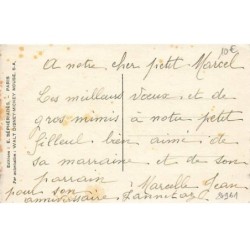 10€
A notre cher petit Marcel
Les meilleurs vœux et de
gros mimis à notre petit
filleul bien aimé de
sa marraine et de son
parrain
Marcelle Jean
pour son
anniversaire
Editions
PARIS
Par autorisation : WALT DISNEY-MICKEY MOUSE, S.A.